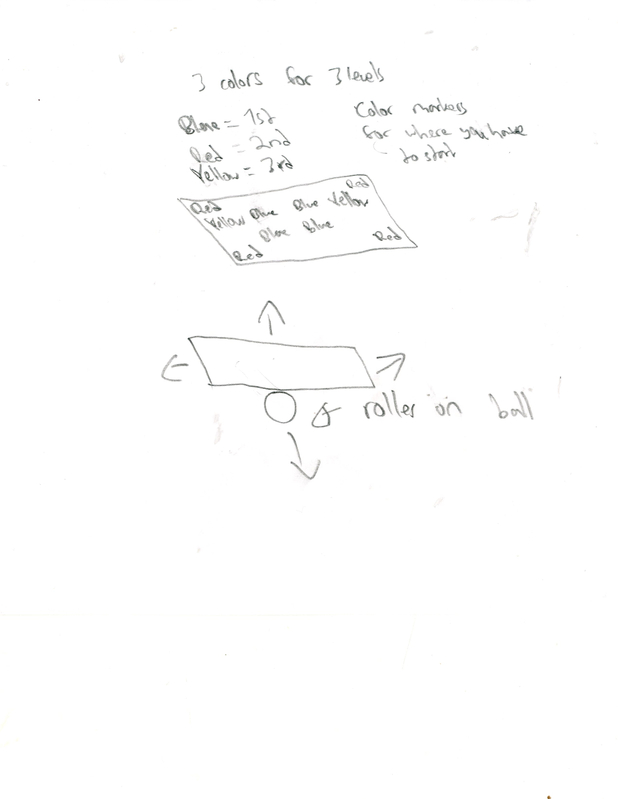 3 colors for 3 levels
Blue = 1st
Red = 2nd
Yellow = 3rd
Color markers
for where you have
to start
Red Red
Yellow Blue Blue Yellow
Blue Blue
Red Red
roller on ball